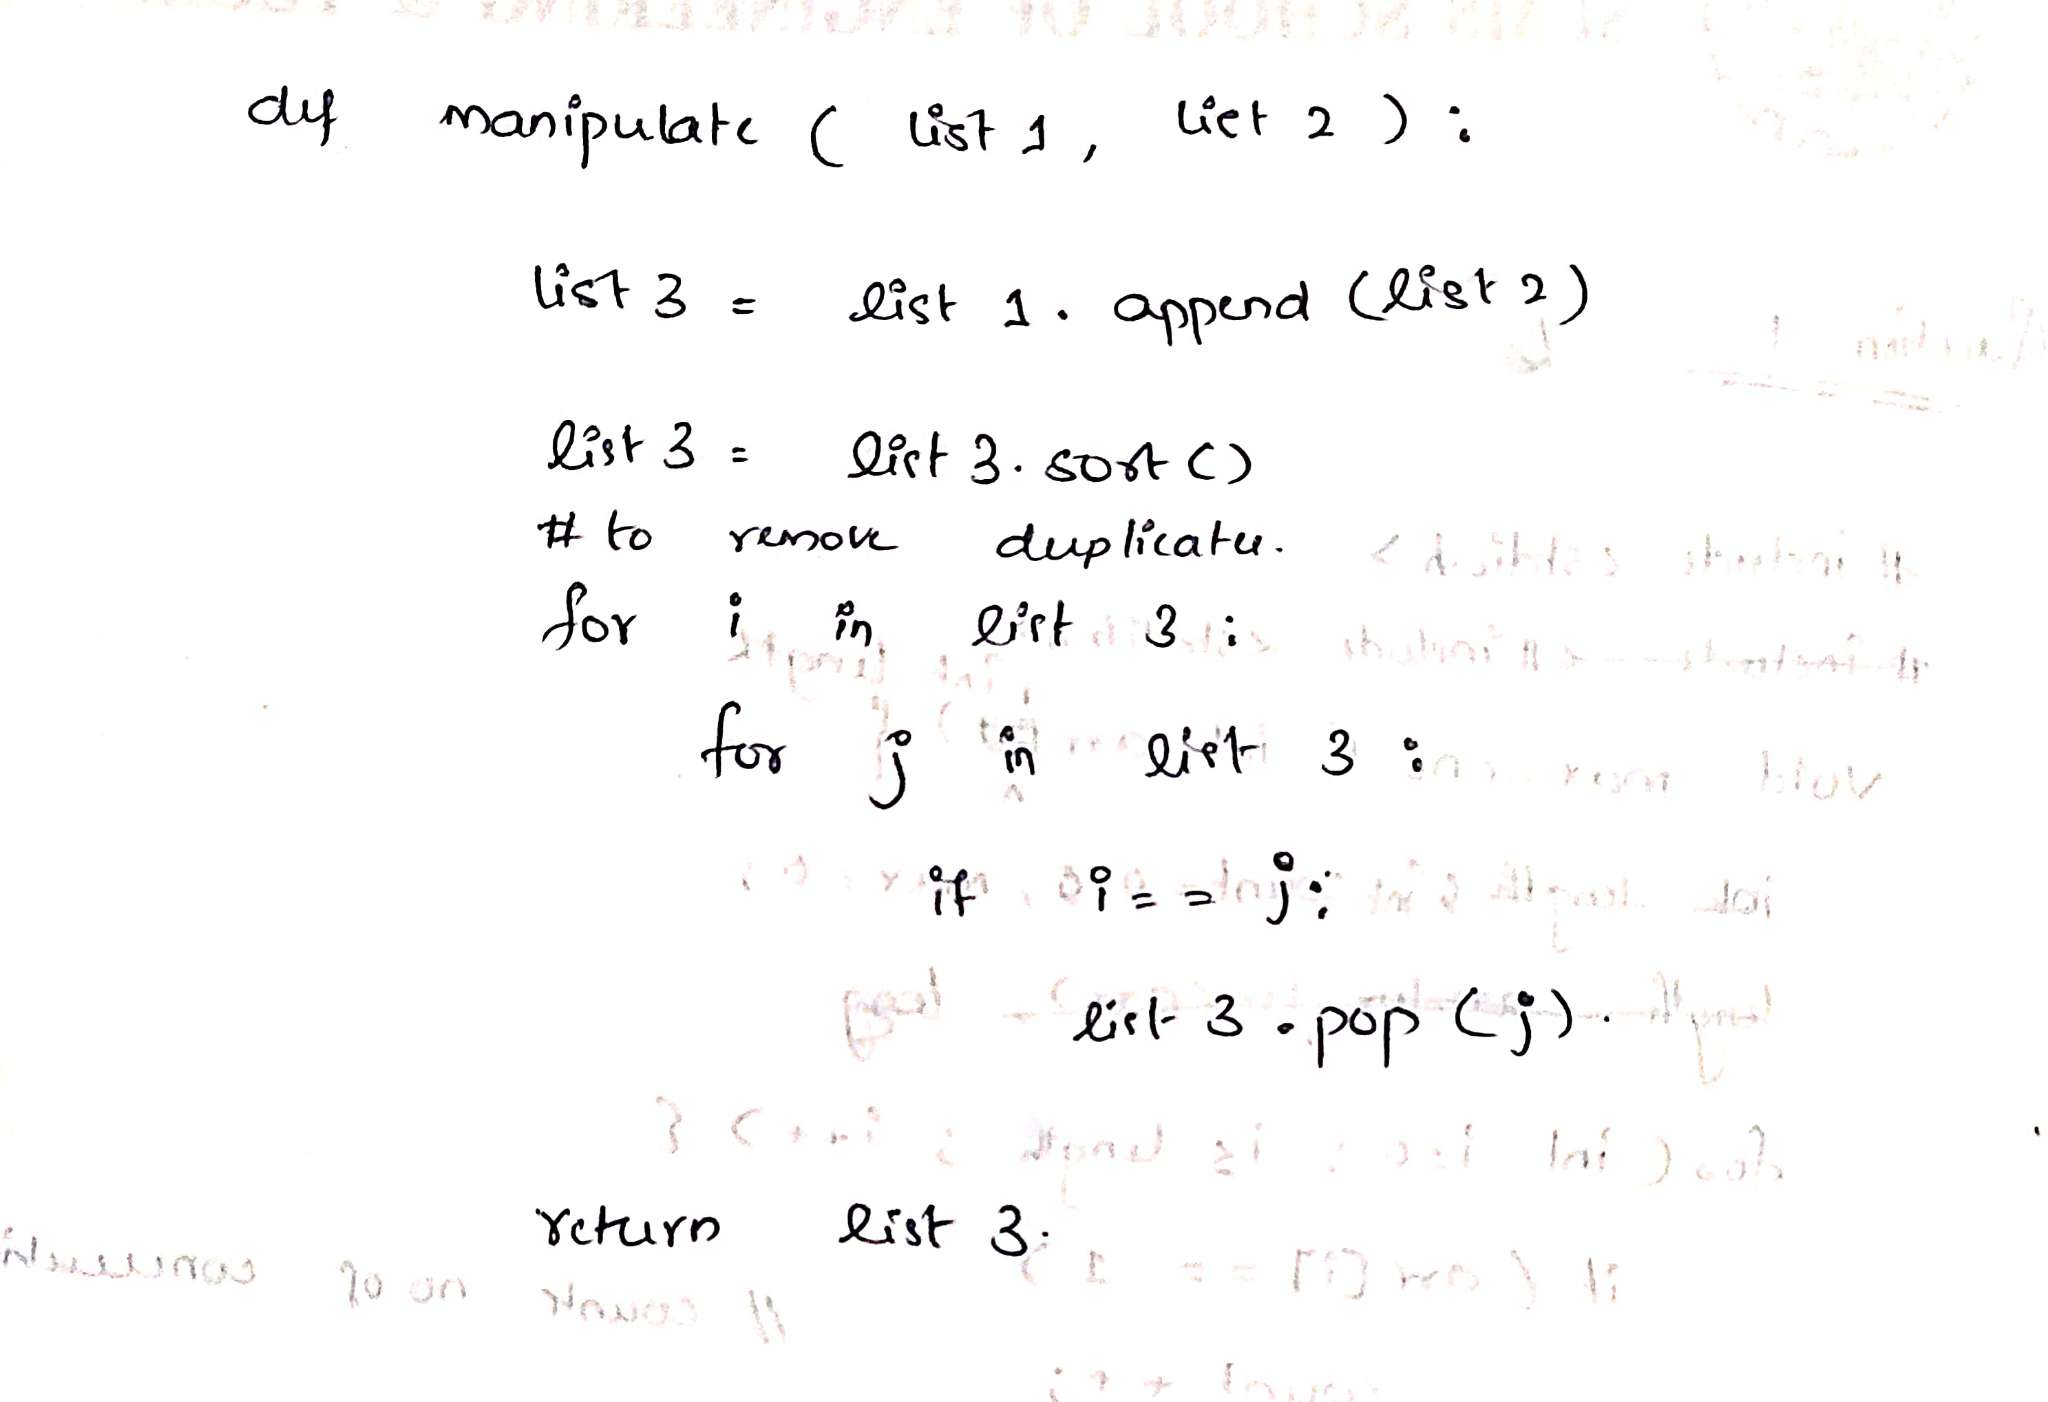 def manipulate ( list 1 , list 2 ) :
list 3 = list 1 . append (list 2)
list 3 = list 3 . sort ()
# to remove duplicates.
for i in list 3 :
for j in list 3 :
if i = = j :
list 3 . pop (j) .
return list 3 .